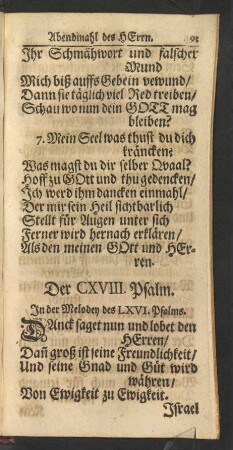 Abendmahl des HErrn. 93
Ihr Schmähwort und falscher
Mund
Mich biß auffs Gebein vewund/
Dann sie täglich viel Red treiben/
Schau wo nun dein GOTT mag
bleiben?
7. Mein Seel was thust du dich
kräncken?
Was magst du dir selber Qvaal?
Hoff zu GOtt und thu gedencken/
Ich werd ihm dancken einmahl/
Der mir sein Heil sichtbarlich
Stellt für Augen unter sich
Ferner wird hernach erklären/
Als den meinen GOtt und HEr-
ren.
Der CXVIII. Psalm.
In der Melodey des LXVI. Psalms.
DAnck saget nun und lobet den
HErren/
Dañ groß ist seine Freundlichkeit/
Und seine Gnad und Güt wird
währen/
Von Ewigkeit zu Ewigkeit.
Israel